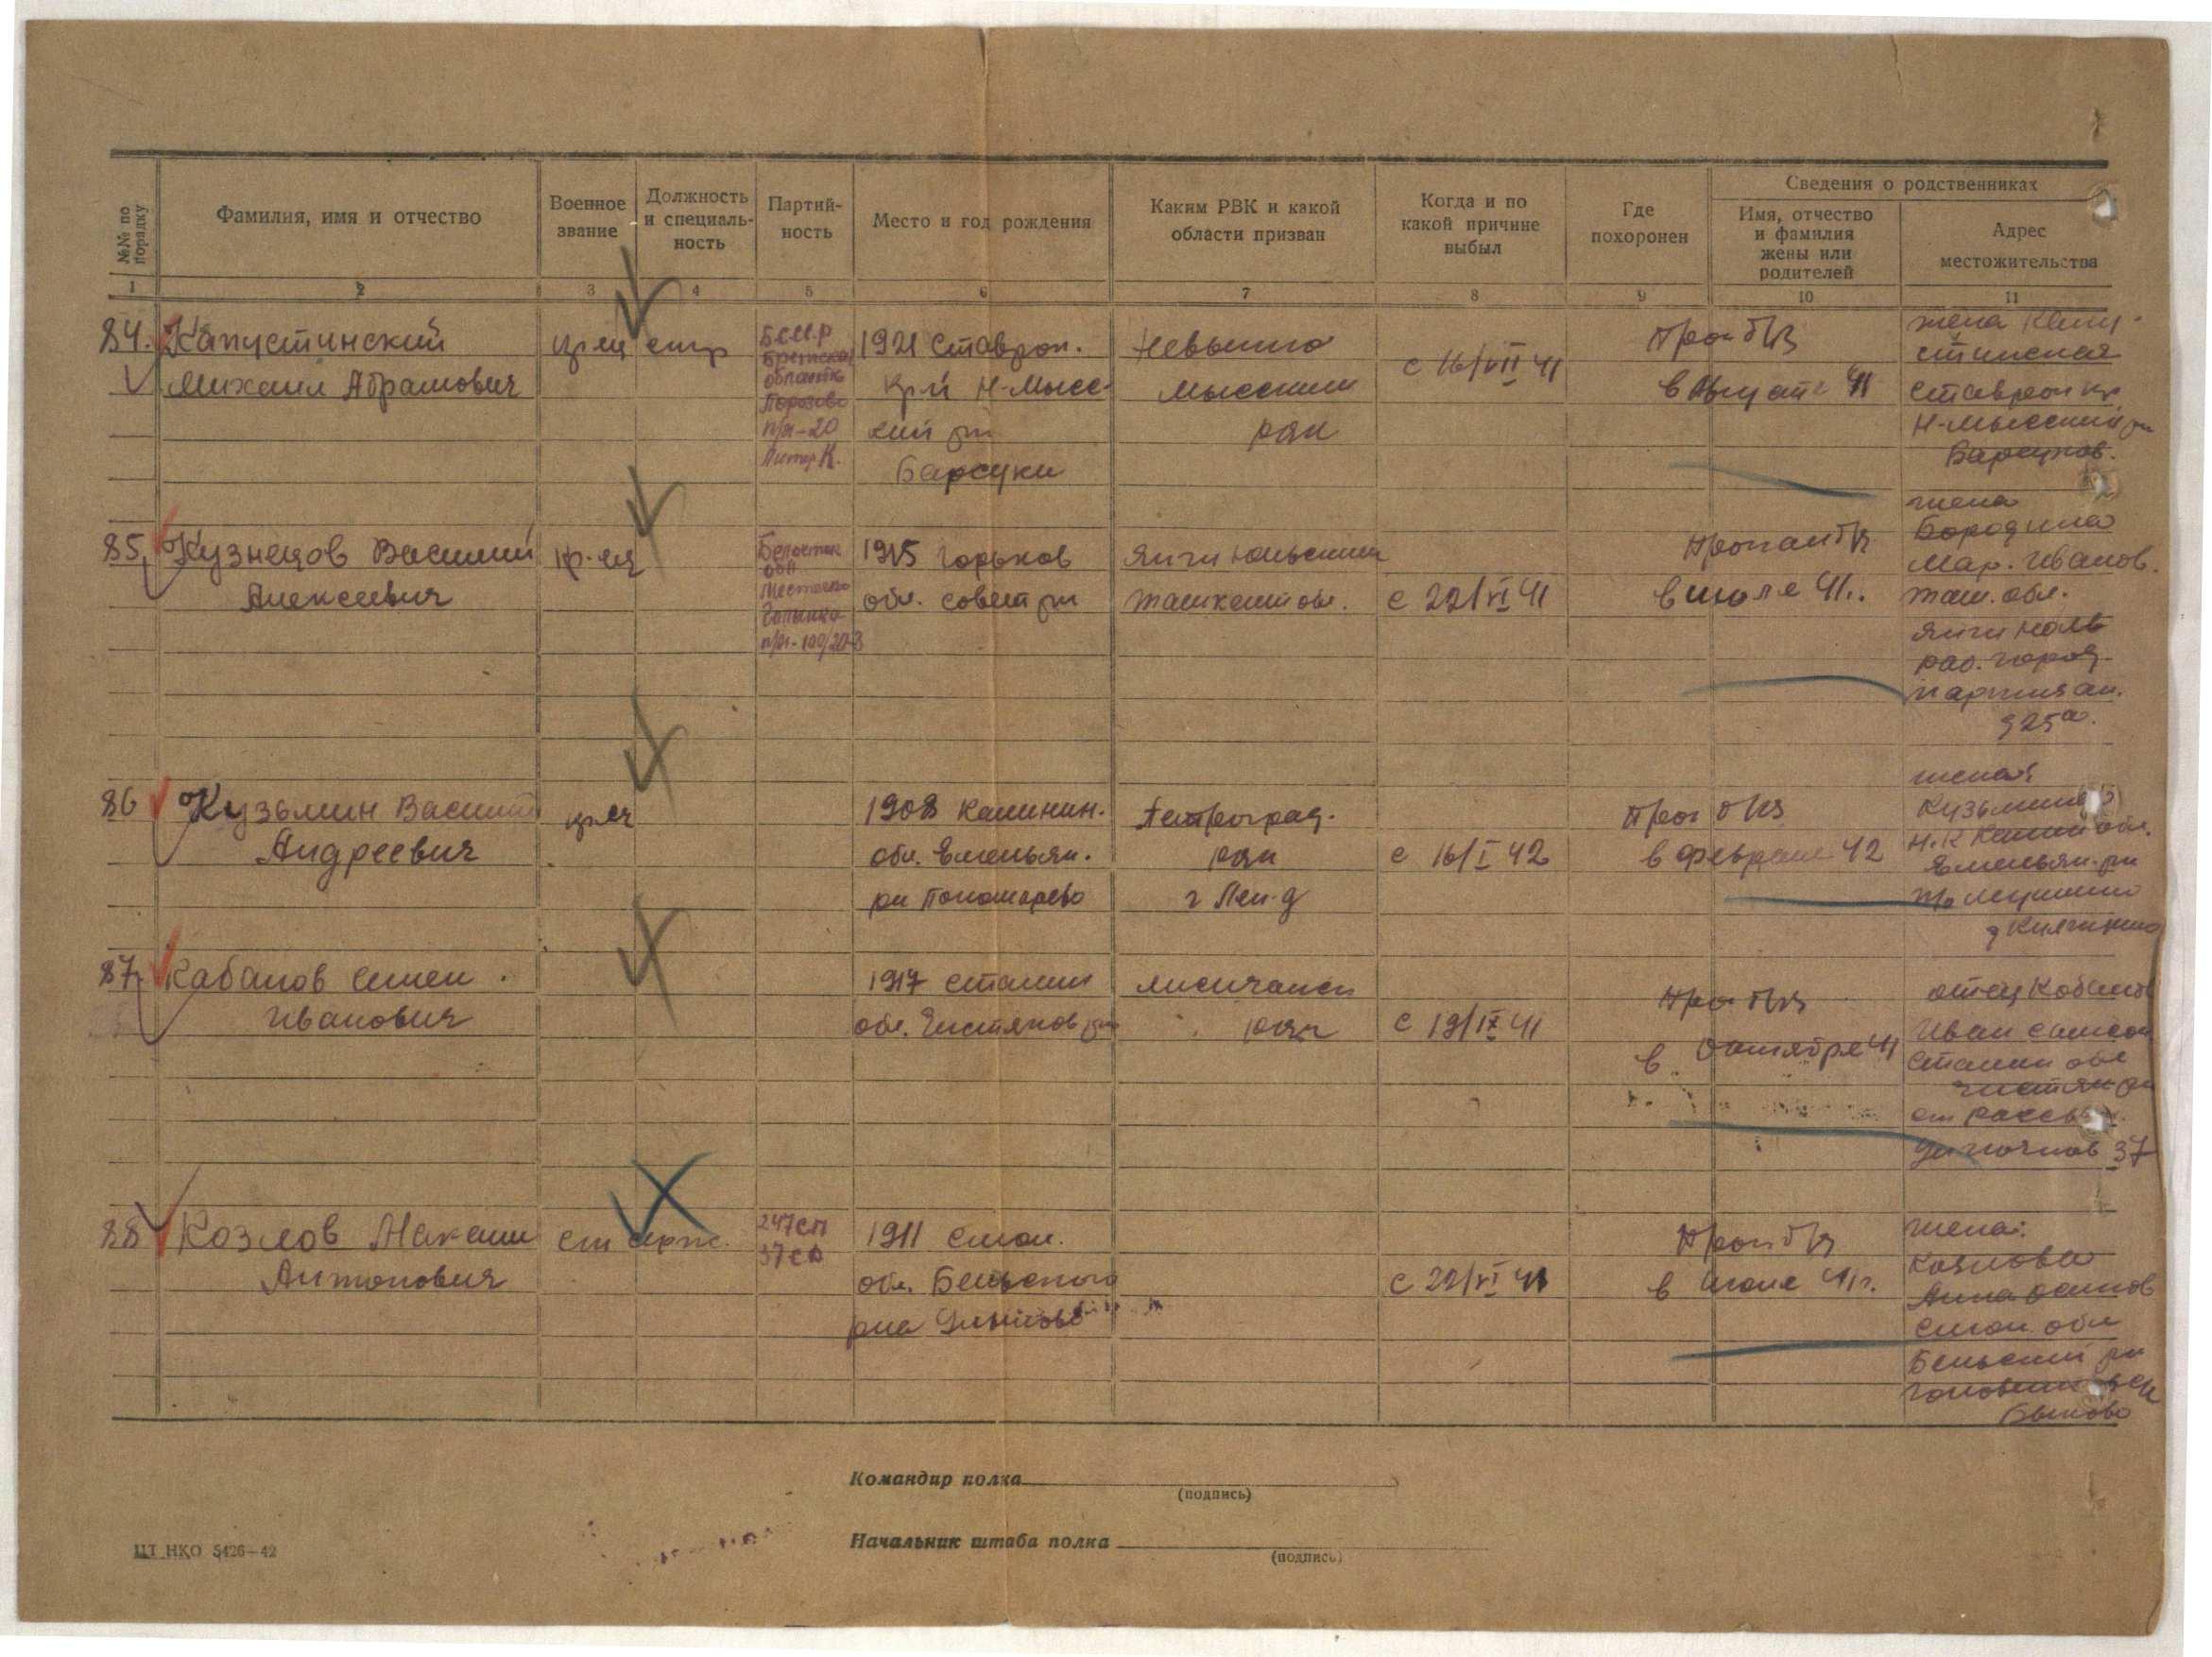 №№ по порядку
Фамилия, имя и отчество
Военное звание
Должность и специаль-ность
Партий-ность
Место и год рождения
Каким РВК и какой области призван
Когда и по какой причине выбыл
Где похоронен
Сведения о родственниках
Имя, отчество и фамилия жены или родителей
Адрес местожительства
1 2 3 4 5 6 7 8 9 10 11
84. Капустинский
Михаил Абрамович
кр-ец стр
БССР
Брестская
область
Порозово
п/я-20
Литер К.
1921 Ставроп.
край Н-Мысс
кий рн
Барсуки
Невынно
мысский
рвк
с 16/VII 41
Проп б/из
в Августе 41
жена Капу-
стинская
Ставроп кр
Н-Мысский рн
Барсуков.
85. Кузнецов Василий
Алексеевич
кр-ец
Белосток
обл
Местечко
п/я-100/20-3
1915 Горьков
обл. Совет рн
Янги Юльский
Ташкент обл.
с 22/VI 41
Проп без
в июле 41г.
жена
Бородина
Мар. Иванов.
Таш. обл.
Янги Юль
рай. город
партизан.
86 Кузьмин Василий
Андреевич
кр-ец
1908 Калинин.
обл. Емельян.
рн Пономарево
Петроград.
рвк
г Лен-д
с 16/I 42
Проп без
в феврале 42
жена:
Кузьмина
Н.К Калин обл.
Емельян. рн
87. Кабанов Семен
Иванович
1917 Сталин
обл. Чистяков рн
Лисичанск
рвк
с 19/IX 41
Проп без
в Октябре 41
отец Кабанов
Иван Самсон
Сталин обл
Чистяк рн
37
88 Козлов Максим
Антонович
ст серж.
247 сп
37 сд
1911 Смол.
обл. Бельского
рна
с 22/VI 41
Проп без
в Июле 41г.
жена:
Козлова
Анна Осипов
Смол. обл
Бельский рн
Быково
Командир полка
(подпись)
Начальник штаба полка
(подпись)
ЦТ НКО 5426—42